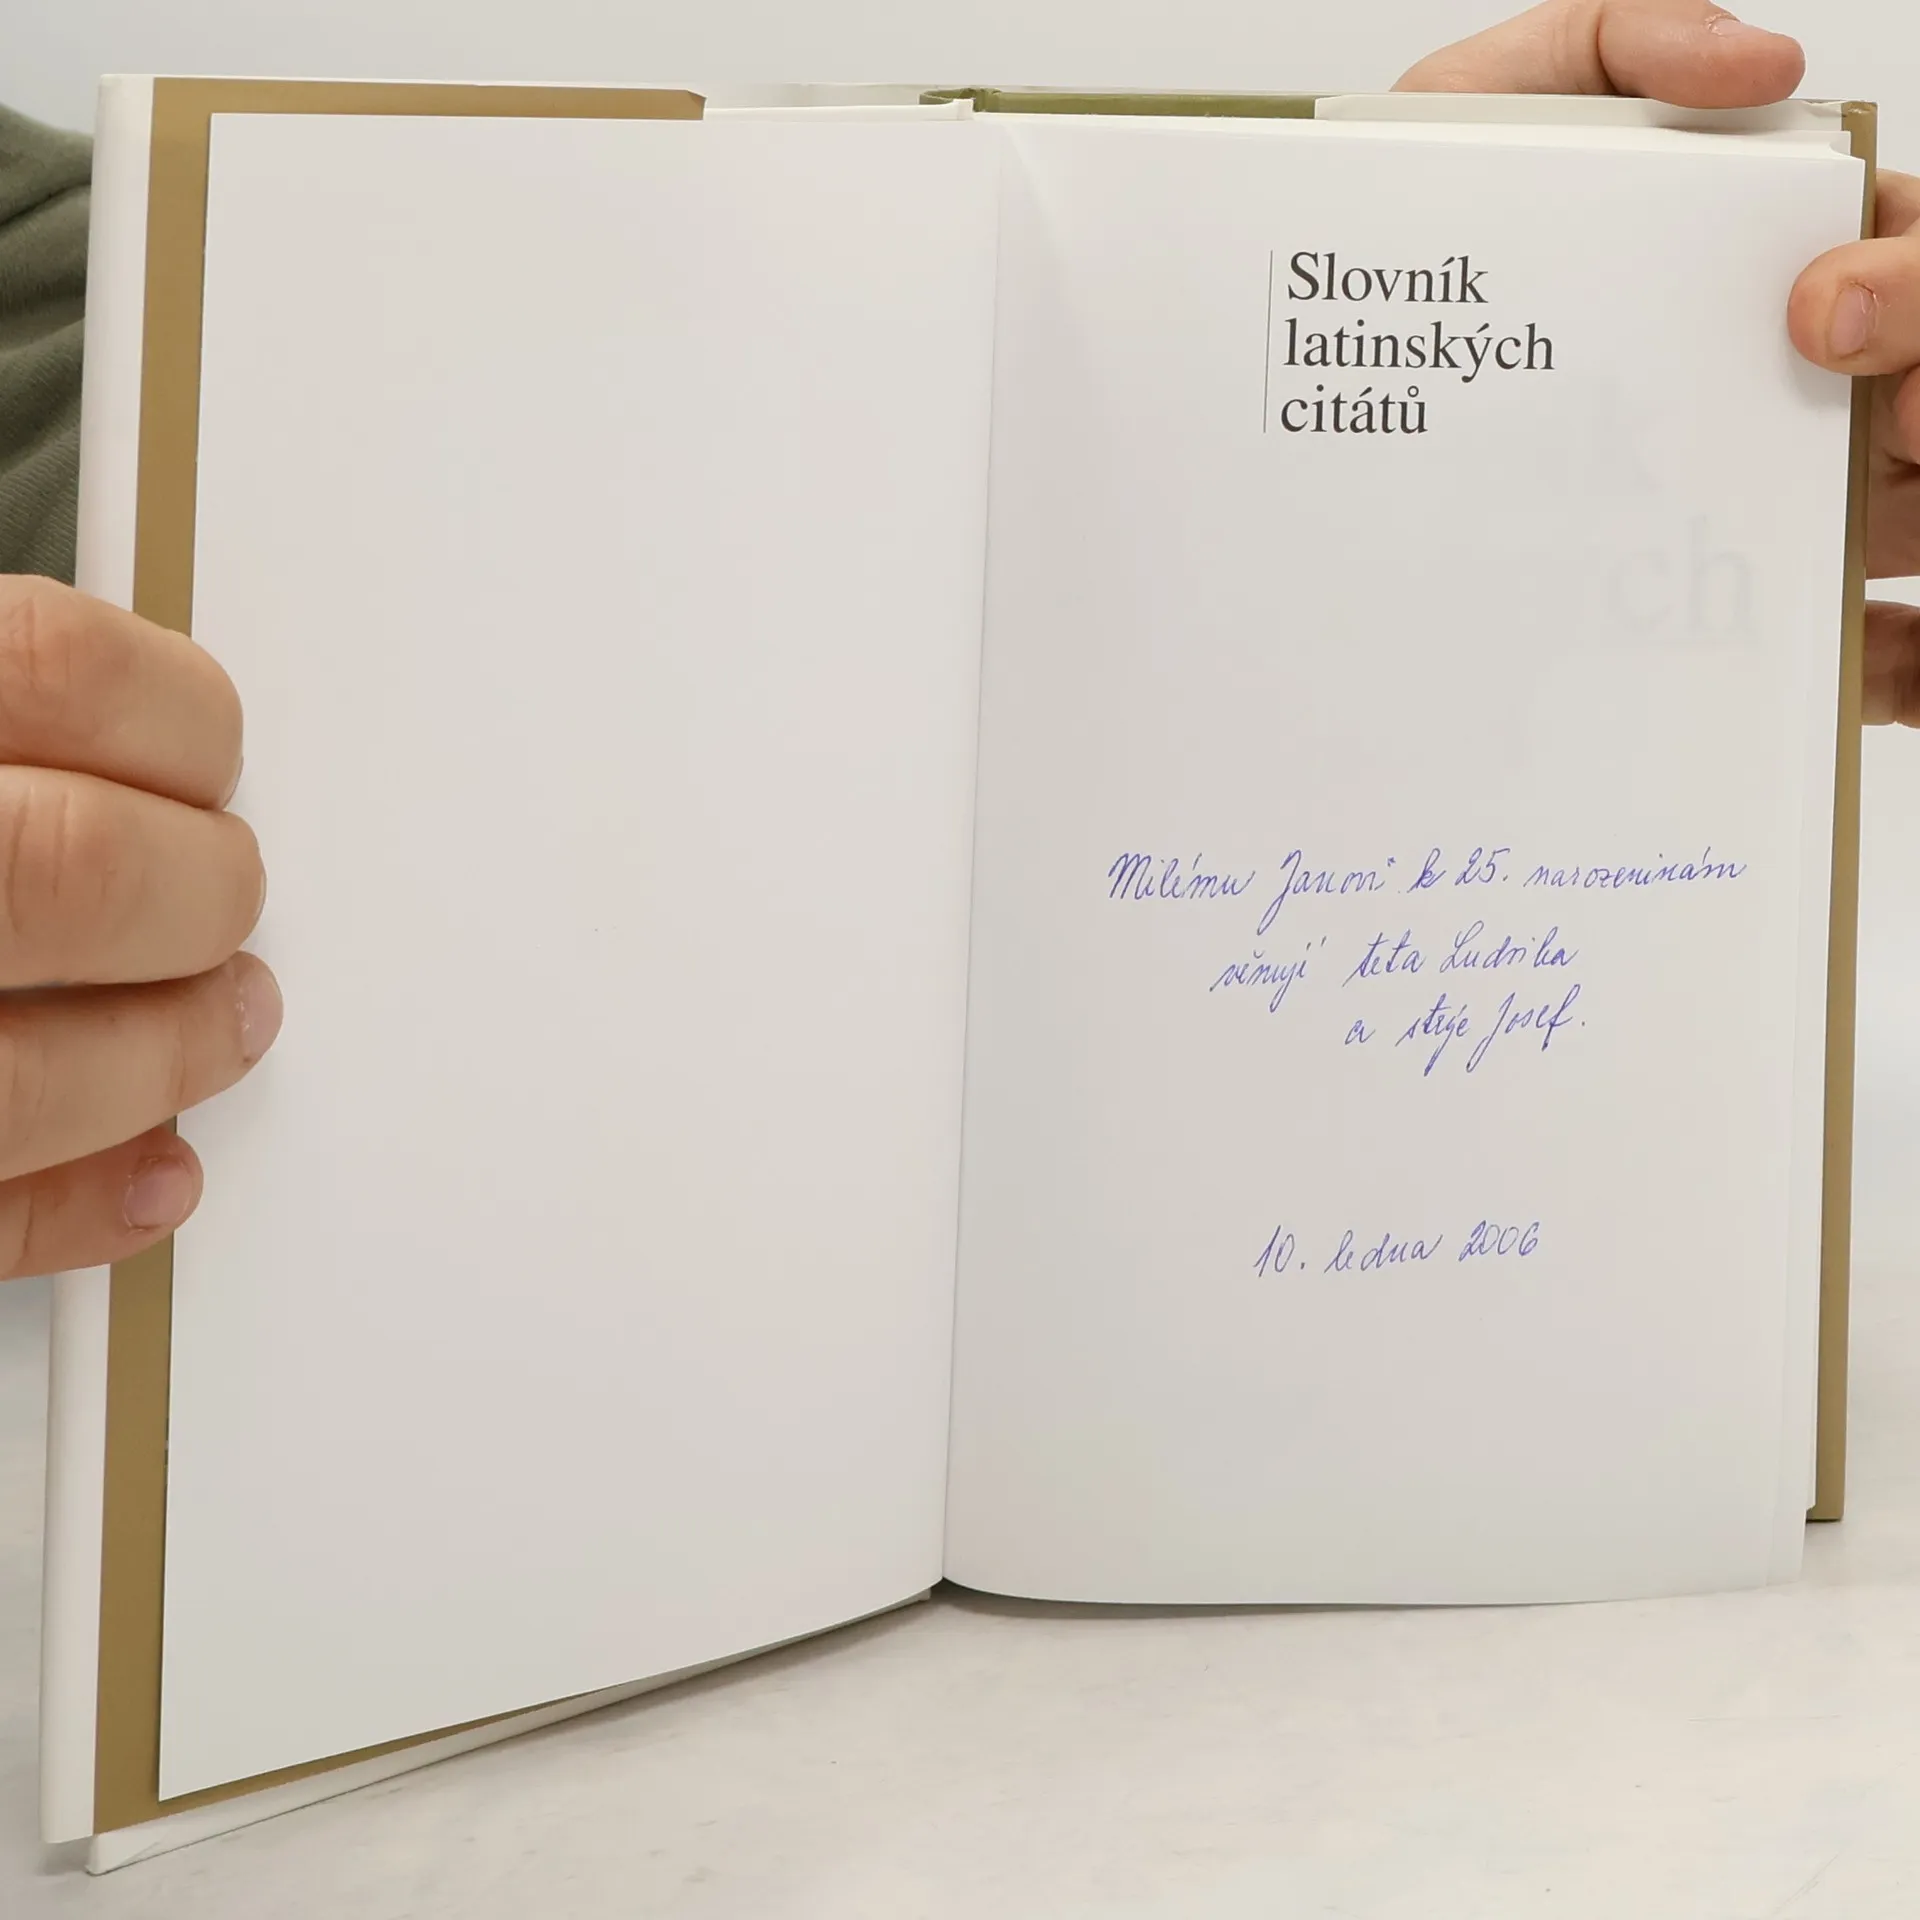 Slovník
latinských
citátů
Milému Janovi k 25. narozeninám
věnují teta Ludvika
a strýc Josef.
10. ledna 2006